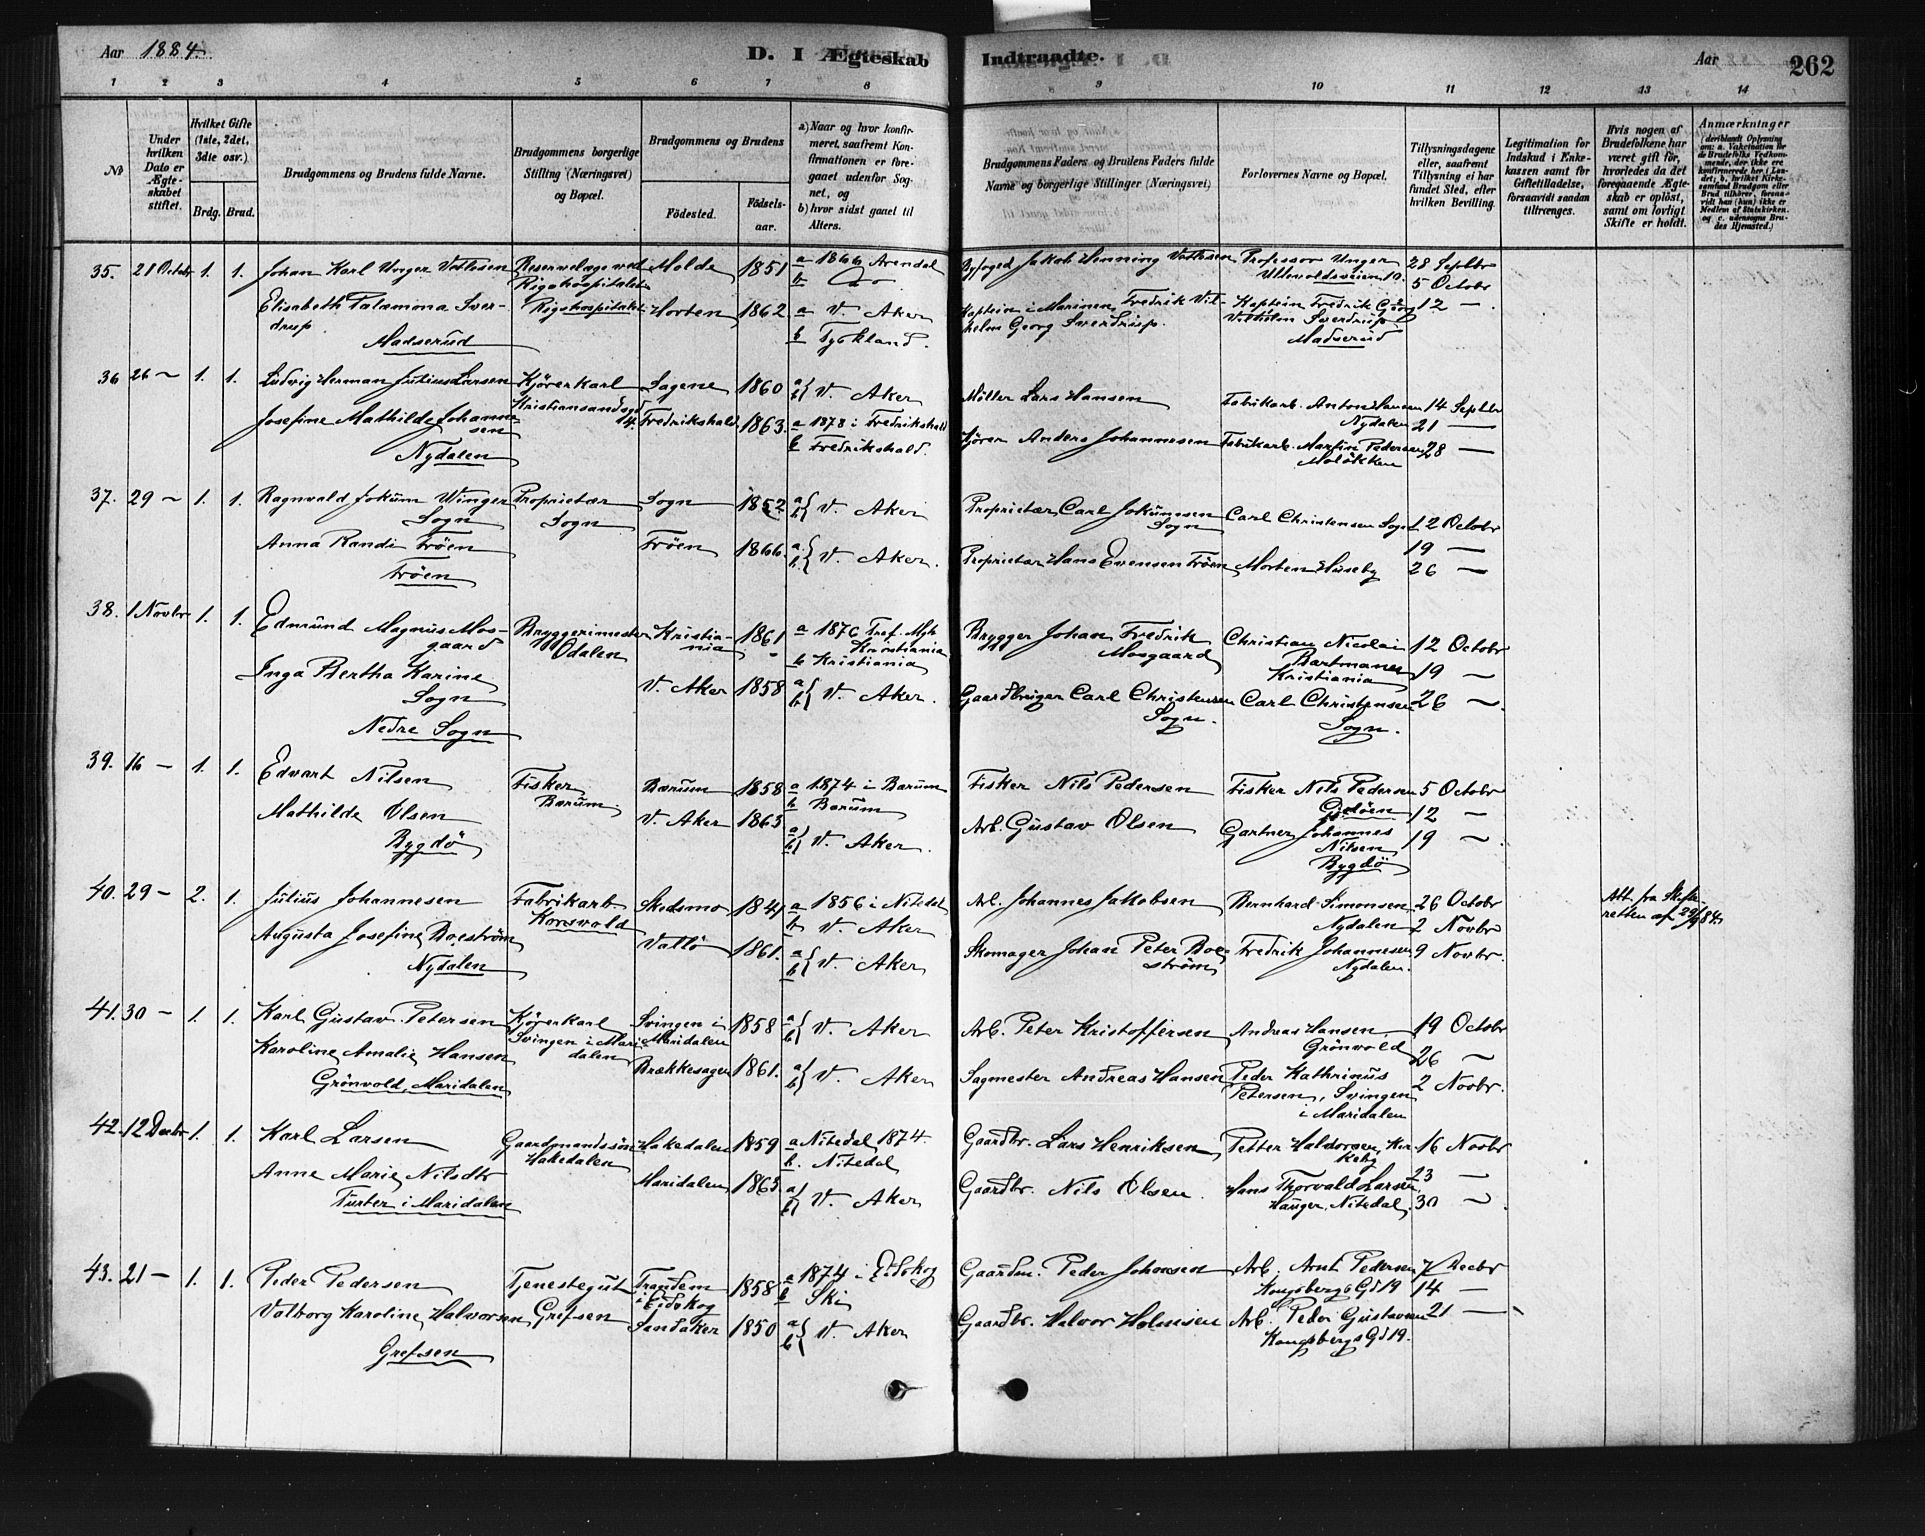 Aar 1884.
D. I Ægteskab Indtraadte.
Aar
262
1 2 3 4 5 6 7 8 9 10 11 12 13 14
No
Under hvilken Dato er Ægteskabet stiftet.
Hvilket Gifte (1ste, 2det, 3die osv.)
Brdg. Brud.
Brudgommens og Brudens fulde Navne.
Brudgommens borgerlige Stilling (Næringsvei) og Bopæl.
Brudgommens og Brudens
Fødested.
Fødselsaar.
a) Naar og hvor konfirmeret, saafremt Konfirmationen er foregaaet udenfor Sognet, og
b) hvor sidst gaaet til Alters.
Brudgommens Faders og Brudens Faders fulde Navne og borgerlige Stillinger (Næringsvei)
Forlovernes Navne og Bopæl.
Tillysningsdagene eller, saafremt Tillysning ei har fundet Sted, efter hvilken Bevilling.
Legitimation for Indskud i Enkekassen samt for Giftetilladelse, forsaavidt saadan tiltrænges.
Hvis nogen af Brudefolkene har været gift før, hvorledes da det foregaaende Ægteskab er opløst, samt om lovligt Skifte er holdt.
Anmærkninger
35. 21 Octobr 1. 1. Johan Karl Unger Vetlesen Reservelæge ved Rigshospitalet Molde 1851 a 1866 Arendal b Do Byfoged Jakob Henning Vetlesen Professor Unger Ullevoldsveien 10. 28 Septbr
5 Octobr
Elisabeth Palæmona Sverdrup Rigshospitalet Horten 1862. a V. Aker b Tyskland. Kaptein i Marinen Fredrik Vilhelm Georg Sverdrup. Kaptein Fredrik Georg Vilhelm Sverdrup Madserud 12 —
Madserud
36 26 — 1. 1. Ludvig Herman Julius Larsen Kjørerkarl Kristiansandsgd 14. Sagene 1860 a b } V. Aker Møller Lars Hansen Fabrikarb. Anton Hansen Nydalen 14 Septbr
21 —
Josefine Mathilde Johannsen Fredrikshald 1863. a 1878 i Fredrikshald b Fredrikshald. Kjører Anders Johannesen Fabrikarb. Martin Pedersen Moløkken 28 —
Nydalen
37. 29 — 1. 1. Ragnvald Jokum Winger Sogn Proprietær Sogn Sogn 1852 a b } V. Aker Proprietær Carl Jokumsen Sogn Carl Christensen Sogn 12 Octobr
19 —
Anna Randi Frøen Frøen 1866. a b } V. Aker. Proprietær Hans Evensen Frøen Morten Huseby 26 —
Frøen
38. 1 Novbr 1. 1. Edmund Magnus Mosgaard Bryggerimester Odalen Kristiania 1861 a 1876 Tref. Mgh Kristiania b Kristiania Brygger Johan Fredrik Mosgaard Christian Nicolai Kristiania 12 Octobr
19 —
Inga Bertha Karine Sogn V. Aker 1858 a b } V. Aker. Gaardbruger Carl Christensen Sogn. Carl Christensen Sogn. 26 —
Nedre Sogn
39. 16 — 1. 1. Edvart Nilsen Fisker Bærum. Bærum 1858 a 1874 i Bærum b Bærum Fisker Nils Pedersen Fisker Nils Pedersen 5 Octobr
12 —
Mathilde Olsen V. Aker 1863 a b } V. Aker. Arb. Gustav Olsen Gartner Johannes Nilsen Bygdø 19 —
Bygdø
40. 29 — 2. 1. Julius Johannesen Fabrikarb Korsvold Skedsmo 1841 a 1856 i Nitedal b V. Aker Arb. Johannes Jakobsen Bernhard Simonsen Nydalen 26 Octobr
2 Novbr
Att. fra Skifteretten af 29/9 84.
Augusta Josefine Boeström Vallö 1861. a b } V. Aker Skomager Johan Peter Boeström Fredrik Johannesen Nydalen. 9 Novbr.
Nydalen
41. 30 — 1. 1. Karl Gustav Petersen Kjørerkarl Svingen i Maridalen Svingen i Maridalen 1858 a b } V. Aker Arb. Peter Kristoffersen Andreas Hansen Grönvold 19 Octobr
26 —
Karoline Amalie Hansen Brækkesagen 1861. a b } V. Aker Sagmester Andreas Hansen Peder Kathrinus Petersen, Svingen i Maridalen 2 Novbr.
Grönvold, Maridalen
42. 12 Decbr 1. 1. Karl Larsen Gaardmandssön Hakedalen Hakedalen 1859 a Nitedal 1874. b. Nitedal Gaardbr. Lars Henriksen Petter Halvorsen, Kirkeby 16 Novbr
23 —
Anne Marie Nilsdtr Maridalen 1863. a b } V. Aker Gaardbr. Nils Olsen. Hans Thorvald Larsen, Hauger, Nitedal. 30 —
Turter i Maridalen
43. 21 — 1. 1. Peder Pedersen Tjenestegut Grefsen i Eidskog 1858 a 1874 i Eidskog b Ski Gaardm. Peder Johnsen Arb. Arnt Pedersen Kongsbergs Gd 19 7 Decbr
14 —
Valborg Karoline Halvorsen Sandaker 1850 a b } V. Aker Gaardbr. Halvor Holmsen Arb. Peder Gustavsen Kongsbergs Gd 19. 21 —
Grefsen